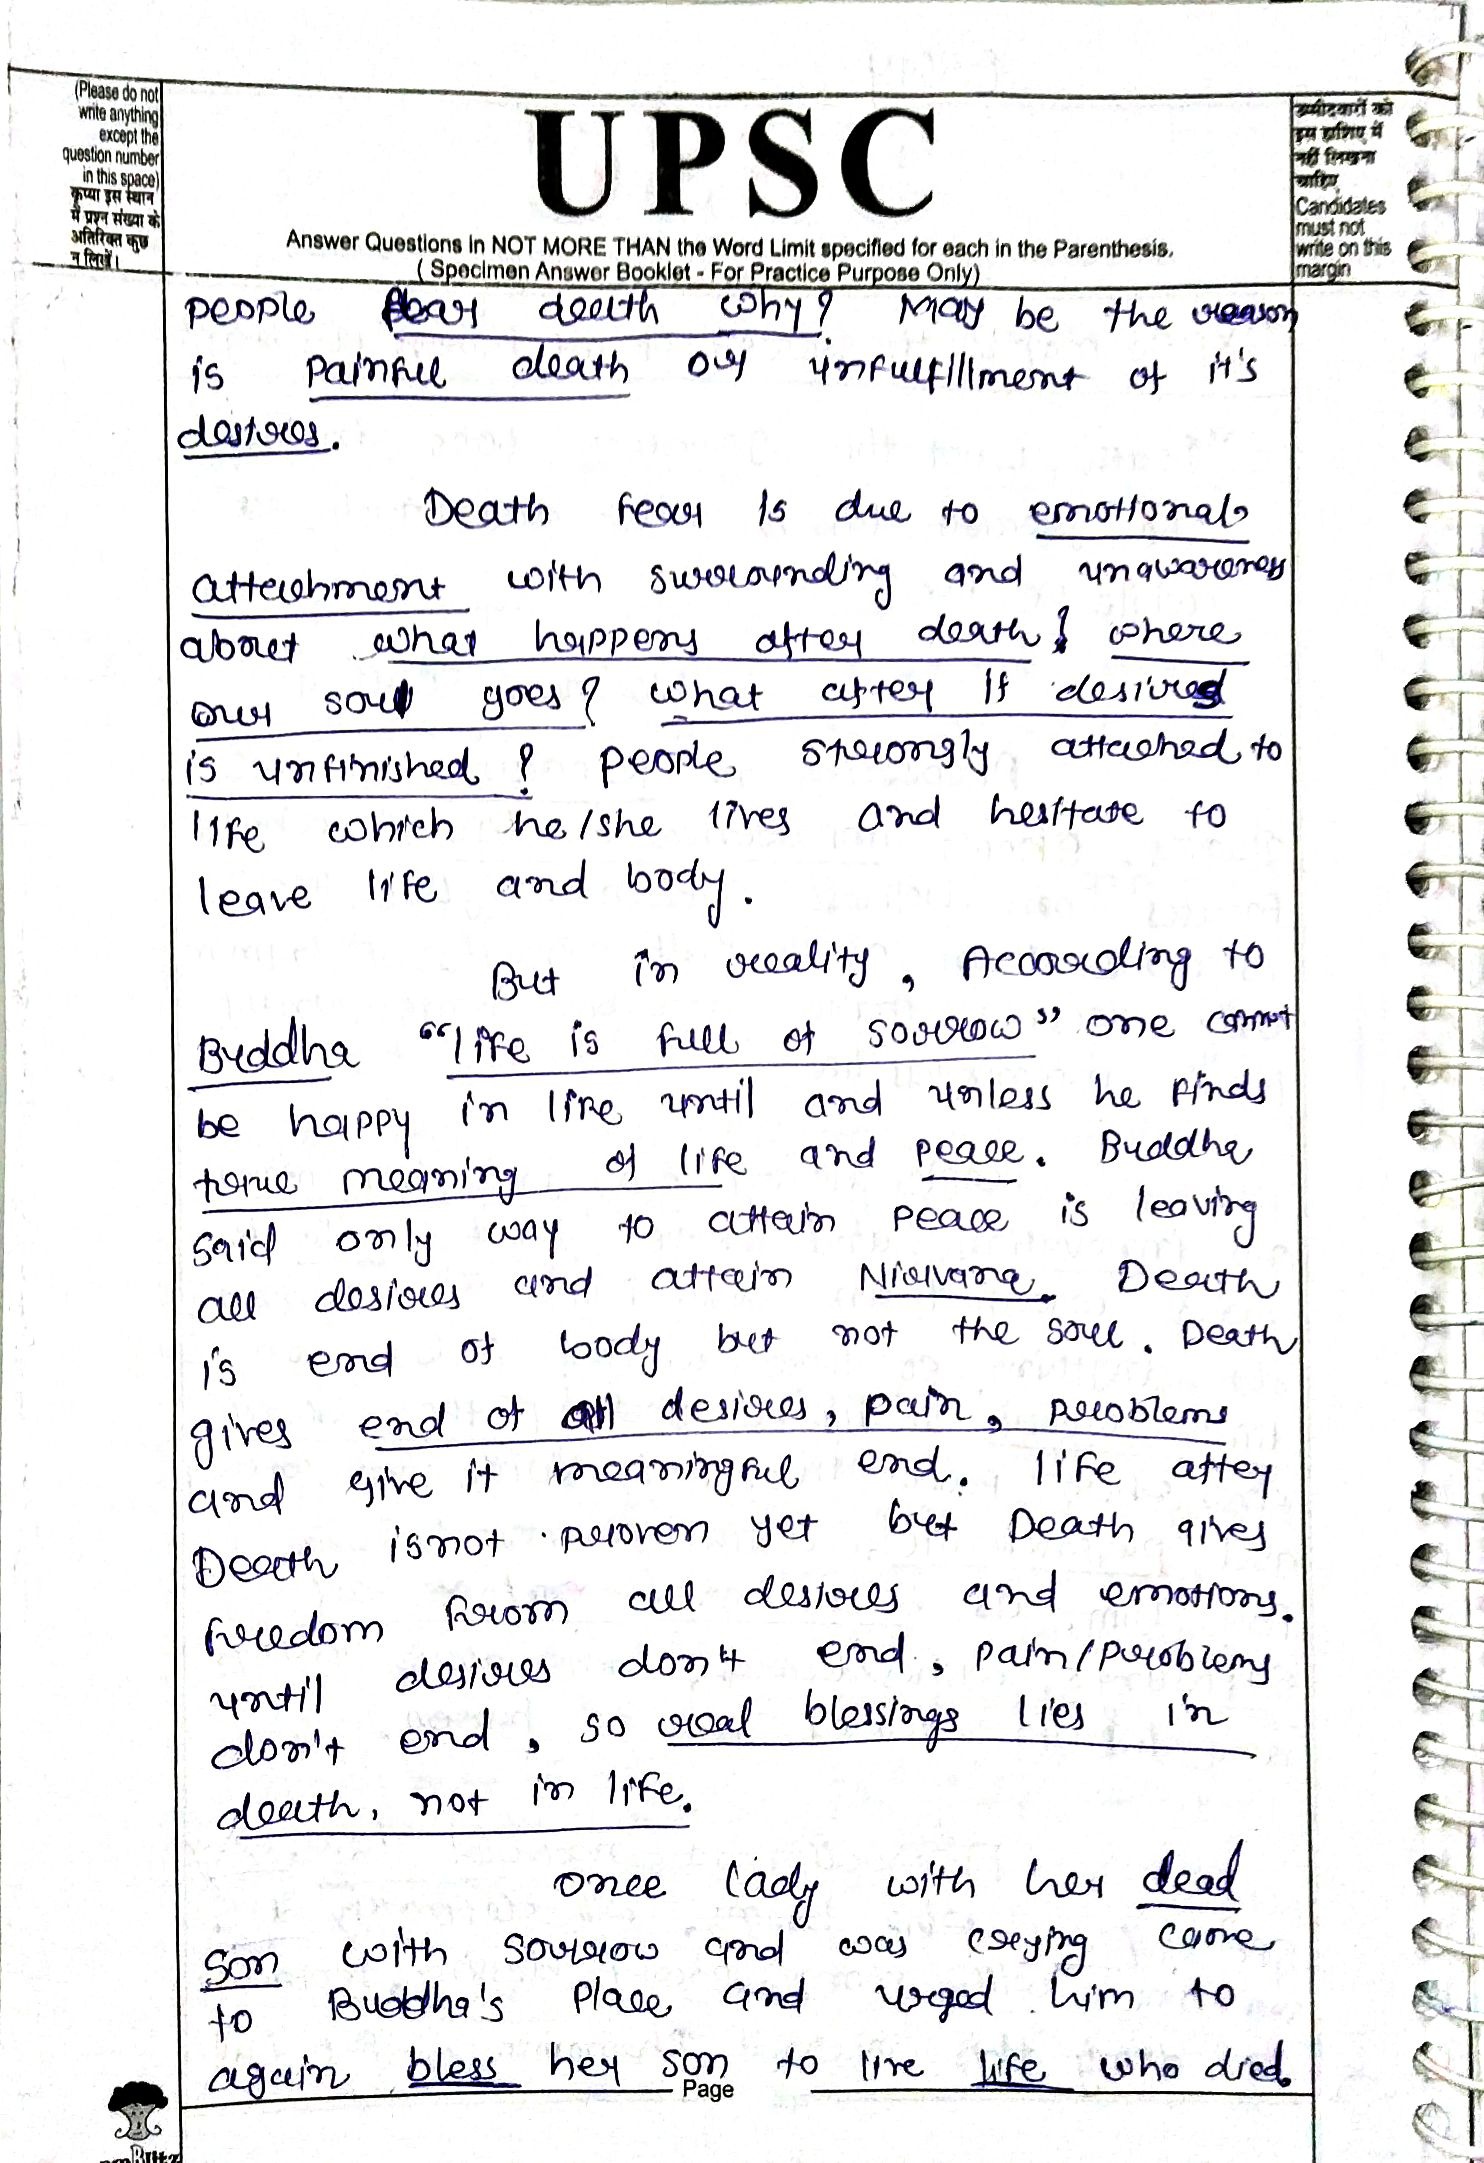 (Please do not
write anything
except the
question number
in this space)
कृप्या इस स्थान
में प्रश्न संख्या के
अतिरिक्त कुछ
न लिखें।
UPSC
Answer Questions in NOT MORE THAN the Word Limit specified for each in the Parenthesis.
( Specimen Answer Booklet - For Practice Purpose Only)
उम्मीदवारों को
इस हाशिए में
नहीं लिखना
चाहिए
Candidates
must not
write on this
margin
people fear death why? May be the reason
is painful death or unfulfillment of it's
desires.
Death fear is due to emotional
attachment with surrounding and unawareness
about what happens after death? where
our soul goes? what after if desired
is unfinished? people strongly attached to
life which he/she lives and hesitate to
leave life and body.
But in reality, According to
Buddha "life is full of sorrow" one cannot
be happy in life until and unless he finds
true meaning of life and peace. Buddha
said only way to attain peace is leaving
all desires and attain Nirvana. Death
is end of body but not the soul. Death
gives end of all desires, pain, problems
and give it meaningful end. life after
Death is not proven yet but Death gives
freedom from all desires and emotions.
until desires don't end, pain/problems
don't end, so real blessings lies in
death, not in life.
Once lady with her dead
son with sorrow and was crying came
to Buddha's place and urged him to
again bless her son to live life who died.
Page